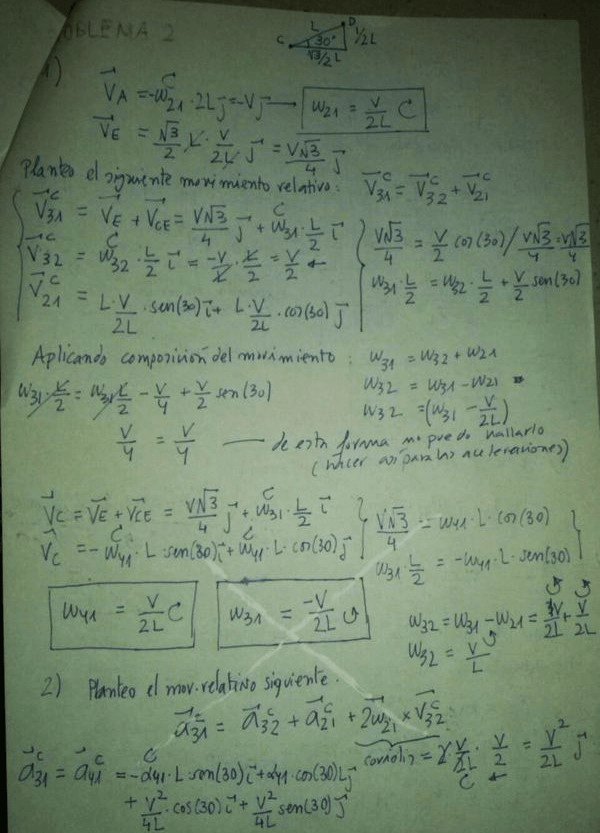 OBLEMA 2
C L D 30° 1/2L √3/2 L
1)
V⃗A = -ω21·2L j⃗ = -V j⃗ → ω21 = V/2L ↻
V⃗E = √3/2 L · V/2L j⃗ = V√3/4 j⃗
Planteo el siguiente movimiento relativo: V⃗31^C = V⃗32^C + V⃗21^C
V⃗31^C = V⃗E + V⃗CE = V√3/4 j⃗ + ω31 · L/2 i⃗
V⃗32^C = ω32 · L/2 i⃗ = -V/L · L/2 = V/2 ←
V⃗21^C = L·V/2L · sen(30) i⃗ + L·V/2L · cos(30) j⃗
V√3/4 = V/2 cos(30) / V√3/4 = V√3/4
ω31 · L/2 = ω32 · L/2 + V/2 sen(30)
Aplicando composición del movimiento: ω31 = ω32 + ω21
ω32 = ω31 - ω21
ω32 = (ω31 - V/2L)
ω31 · L/2 = ω31 L/2 - V/4 + V/2 sen(30)
V/4 = V/4 — de esta forma no puedo hallarlo
(hacer así para las aceleraciones)
V⃗C = V⃗E + V⃗CE = V√3/4 j⃗ + ω31 · L/2 i⃗
V⃗C = -ω41 · L · sen(30) i⃗ + ω41 · L · cos(30) j⃗
V√3/4 = ω41 · L · cos(30)
ω31 · L/2 = -ω41 · L · sen(30)
ω41 = V/2L ↻
ω31 = -V/2L ↺
ω32 = ω31 - ω21 = V/2L + V/2L
ω32 = V/L ↺
2) Planteo el mov. relativo siguiente.
a⃗31^C = a⃗32^C + a⃗21^C + 2ω⃗21 × V⃗32^C
coriolis = 2 V/2L · V/2 = V²/2L j⃗
a⃗31^C = a⃗41^C = -α41 · L · sen(30) i⃗ + α41 · cos(30) L j⃗
+ V²/4L · cos(30) i⃗ + V²/4L sen(30) j⃗